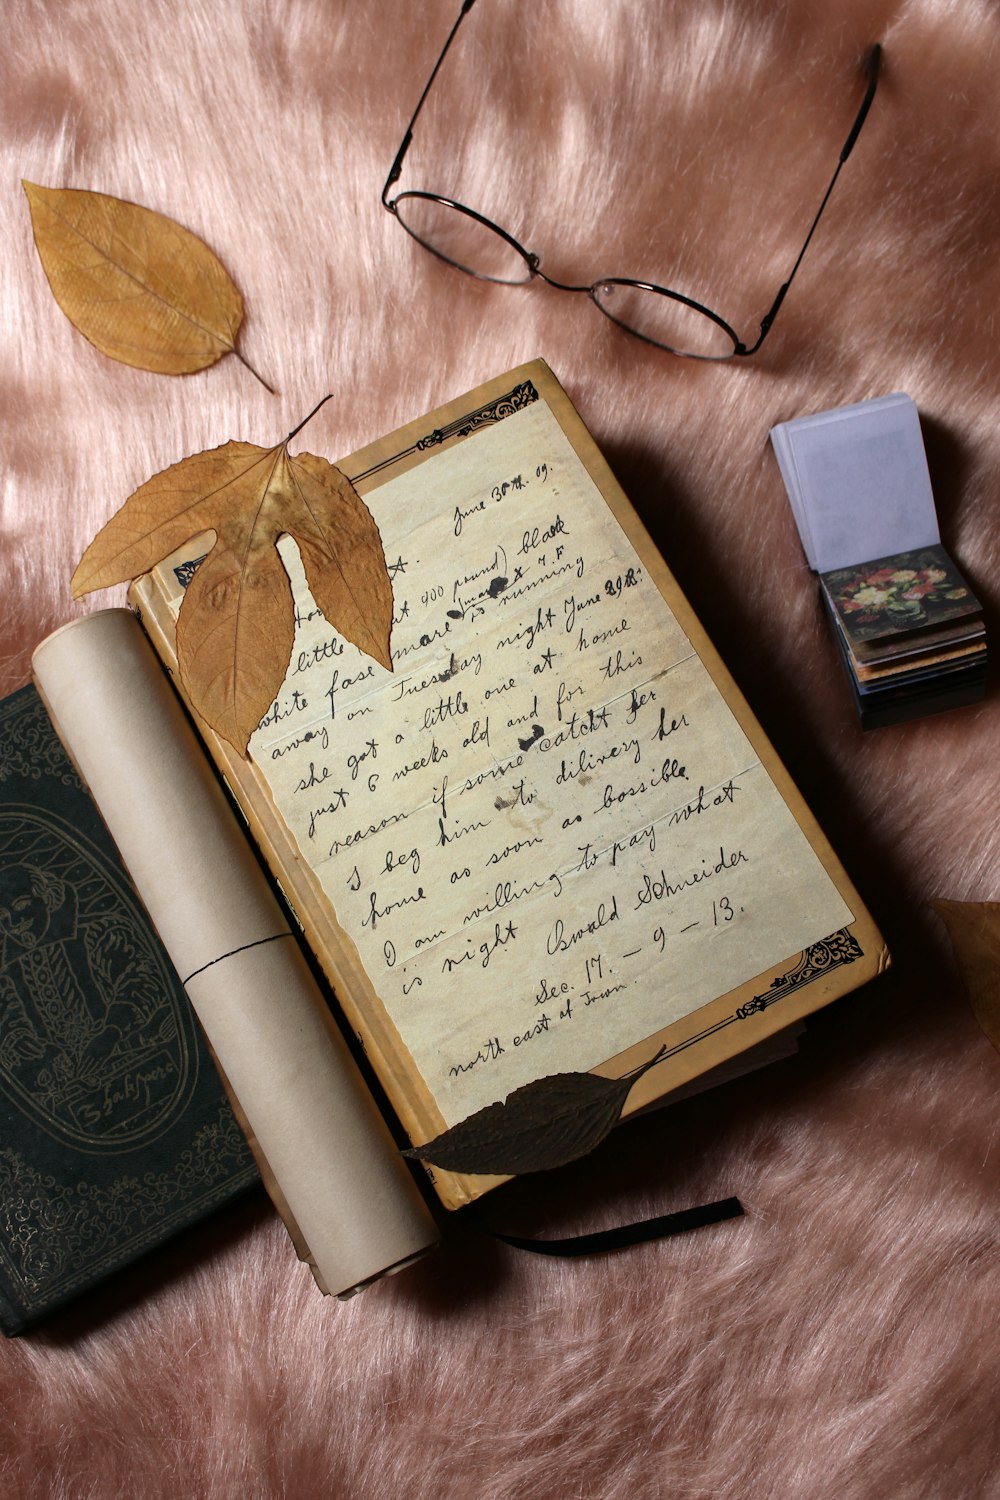 June 30th. 09.
st.
for
t 400 pound) black
little (mare X 7. F
white fase mare is running
away on Tuesday night June 29th.
she got a little one at home
just 6 weeks old and for this
reason if some catcht her
I beg him to dilivery her
home as soon as bossible.
I am willing to pay what
is night
Oswald Schneider
Sec. 17. – 9 – 13.
north east of Town.